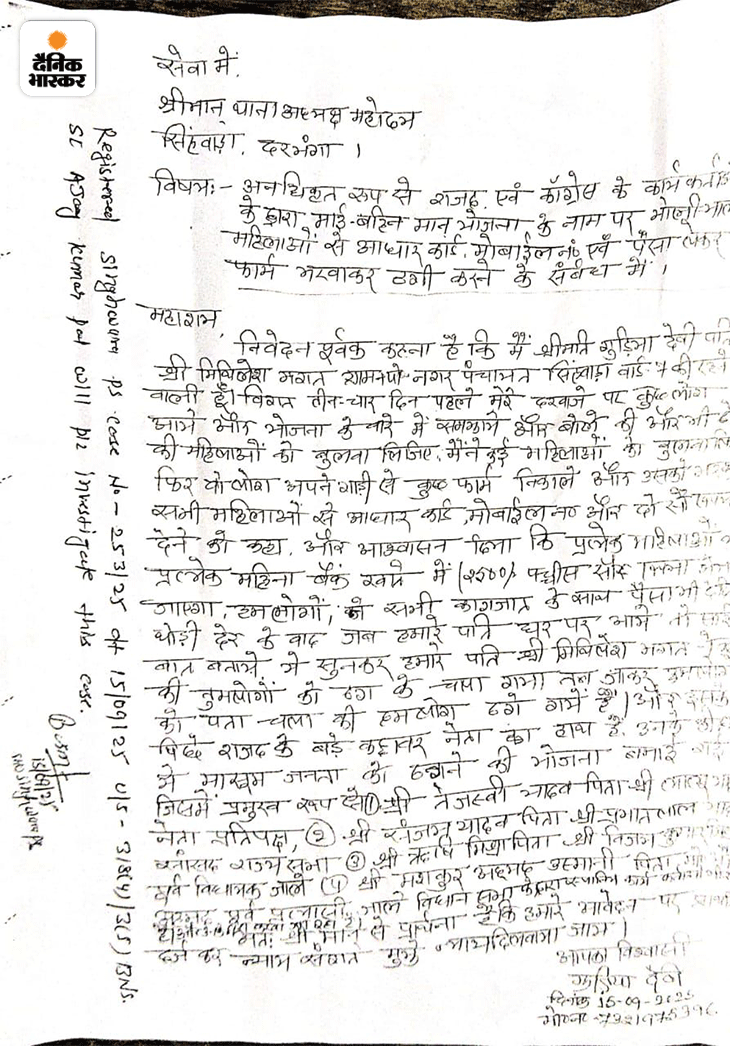 दैनिक
भास्कर
सेवा में,
श्रीमान् थाना अध्यक्ष महोदय
सिंहवाड़ा, दरभंगा ।
विषय:- अनधिकृत रूप से राजद, एवं कॉंग्रेस के कार्यकर्ता
के द्वारा माई-बहिन मान योजना के नाम पर भोली-भाली
महिलाओं से आधार कार्ड, मोबाईल नं० एवं पैसा लेकर
फार्म भरवाकर ठगी करने के संबंध में ।
महाशय,
निवेदन पूर्वक कहना है कि मैं श्रीमति गुड़िया देवी पति
श्री मिथिलेश भगत नगर पंचायत सिंहवाड़ा वार्ड-7 की रहने
वाली हूँ। विगत तीन-चार दिन पहले मेरे दरवाजे पर कुछ लोग
आये और योजना के बारे में समझाये और बोले की और भी
की महिलाओं को बुलवा लिजिए, मैंने कई महिलाओं को
फिर वो लोग अपने गाड़ी से कुछ फार्म निकाले और उसको
सभी महिलाओं से आधार कार्ड, मोबाईल नं० और दो सौ
देने को कहा, और आश्वासन दिया कि प्रत्येक महिलाओं
प्रत्येक महिना बैंक खाते में (2500/- पच्चीस सौ
जाएगा, हमलोगों, ने सभी कागजात के साथ पैसा भी
थोड़ी देर के बाद जब हमारे पति घर पर आये तो
बात बताये ये सुनकर हमारे पति श्री मिथिलेश भगत
की तुमलोगों को ठग के चला गया तब जाकर हमलोग
को पता चला की हमलोग ठगे गये हैं । और इसके
पिछे राजद के बड़े कद्दावर नेता का हाथ है, उनके
से मासूम जनता को ठगने की योजना बनाई
जिसमें प्रमुख रूप से ① श्री तेजस्वी यादव पिता श्री लालू
नेता प्रतिपक्ष, ② श्री संजय यादव पिता श्री प्रभात लाल
राज्य सभा ③ श्री ऋषि मिश्रा पिता श्री विजय कुमार
पूर्व विधायक जाले (4) श्री मशकुर अहमद उस्मानी पिता
अहमद पूर्व प्रत्याशी जाले विधान सभा
अतः श्री मान से प्रार्थना है कि हमारे आवेदन पर
दर्ज कर न्याय संगत मुझे न्याय दिलवाया जाय ।
आपका विश्वासी
गुड़िया देवी
दिनांक 15-09-2025
मो०न० -7321975396
Registered Singhwara PS case No - 253/25 dt 15/09/25 U/S - 318(4)/3(5) BNS.
SI Ajay Kumar pal will plz investigate this case.
15/9/25
SHO Singhwara PS